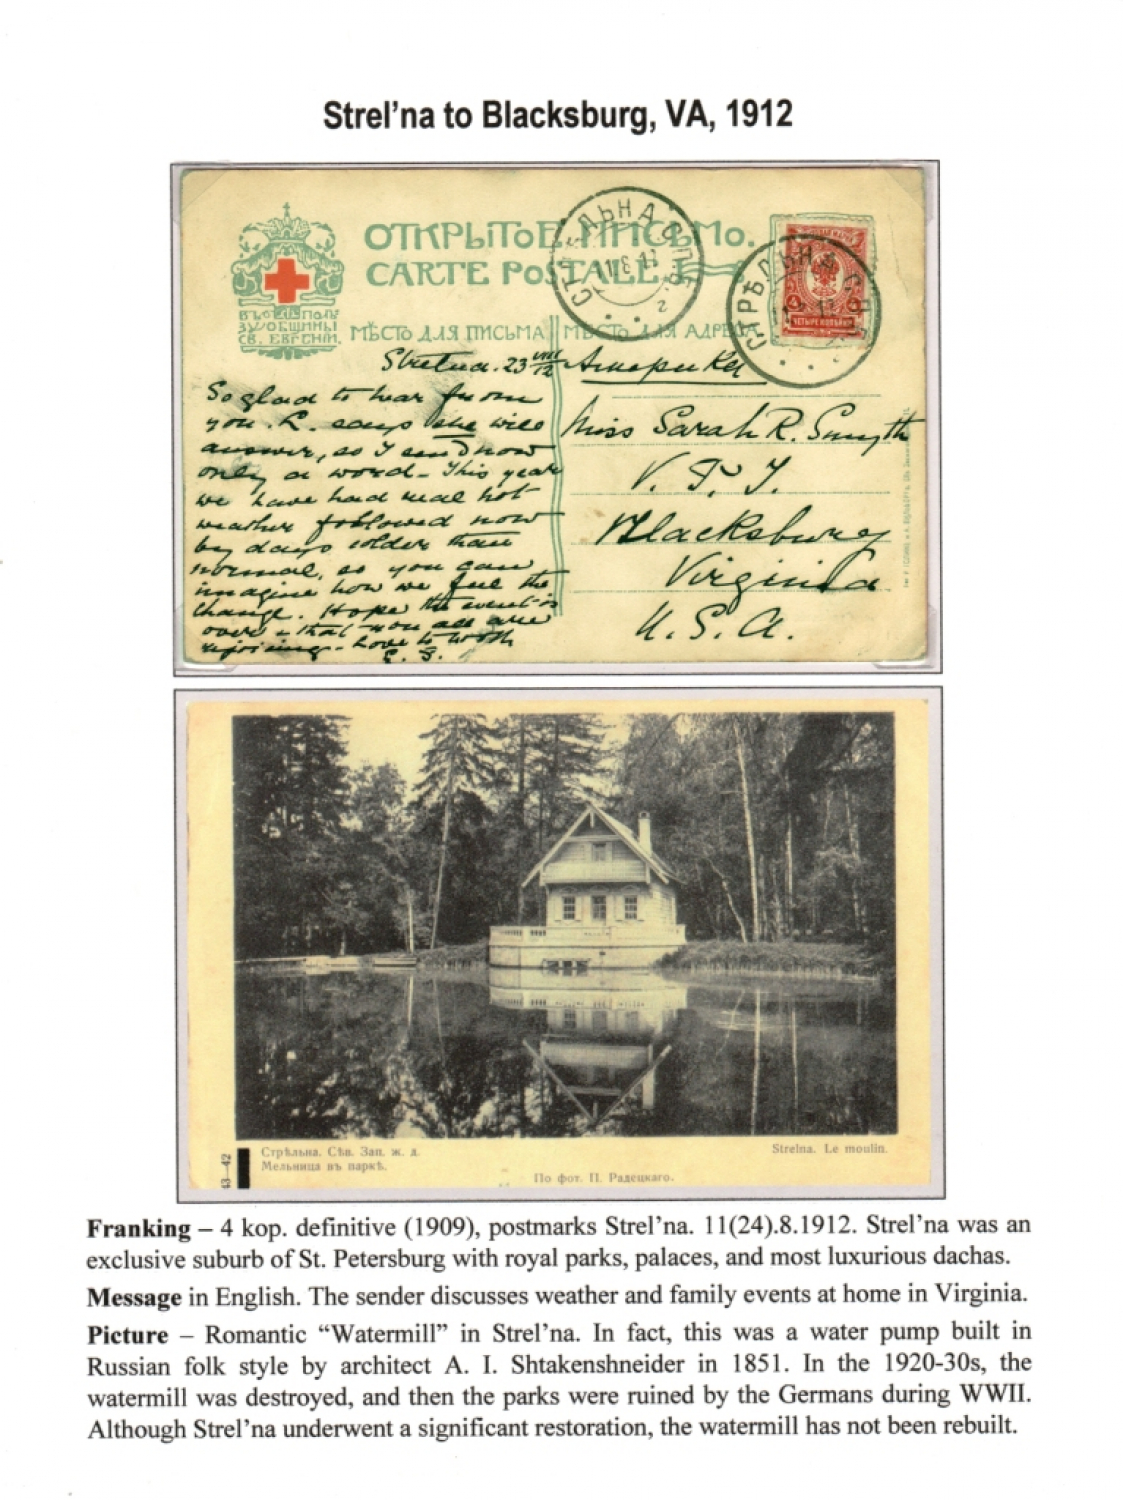 Strel’na to Blacksburg, VA, 1912
ОТКРЫТОЕ ПИСЬМО.
CARTE POSTALE.
СТРѢЛЬНА С.П.Б.
СТРѢЛЬНА С.П.Б.
ЧЕТЫРЕ КОПѢЙКИ
ВЪ ПОЛЬЗУ ОБЩИНЫ
СВ. ЕВГЕНІИ.
МѢСТО ДЛЯ ПИСЬМА
МѢСТО ДЛЯ АДРЕСА
Strelna. 23 VIII/12
Америка
So glad to hear from
you. L. says she will
answer, so I send now
only a word – This year
we have had real hot
weather followed now
by days colder than
normal, so you can
imagine how we feel the
change. Hope the event is
over & that you all are
rejoicing – Love to both
Miss Sarah R. Smyth
V. P. I.
Blacksburg
Virginia
U. S. A.
43—42
Стрѣльна. Сѣв. Зап. ж. д.
Мельница въ паркѣ.
Strelna. Le moulin.
По фот. П. Радецкаго.
Franking – 4 kop. definitive (1909), postmarks Strel’na. 11(24).8.1912. Strel’na was an
exclusive suburb of St. Petersburg with royal parks, palaces, and most luxurious dachas.
Message in English. The sender discusses weather and family events at home in Virginia.
Picture – Romantic “Watermill” in Strel’na. In fact, this was a water pump built in
Russian folk style by architect A. I. Shtakenshneider in 1851. In the 1920-30s, the
watermill was destroyed, and then the parks were ruined by the Germans during WWII.
Although Strel’na underwent a significant restoration, the watermill has not been rebuilt.